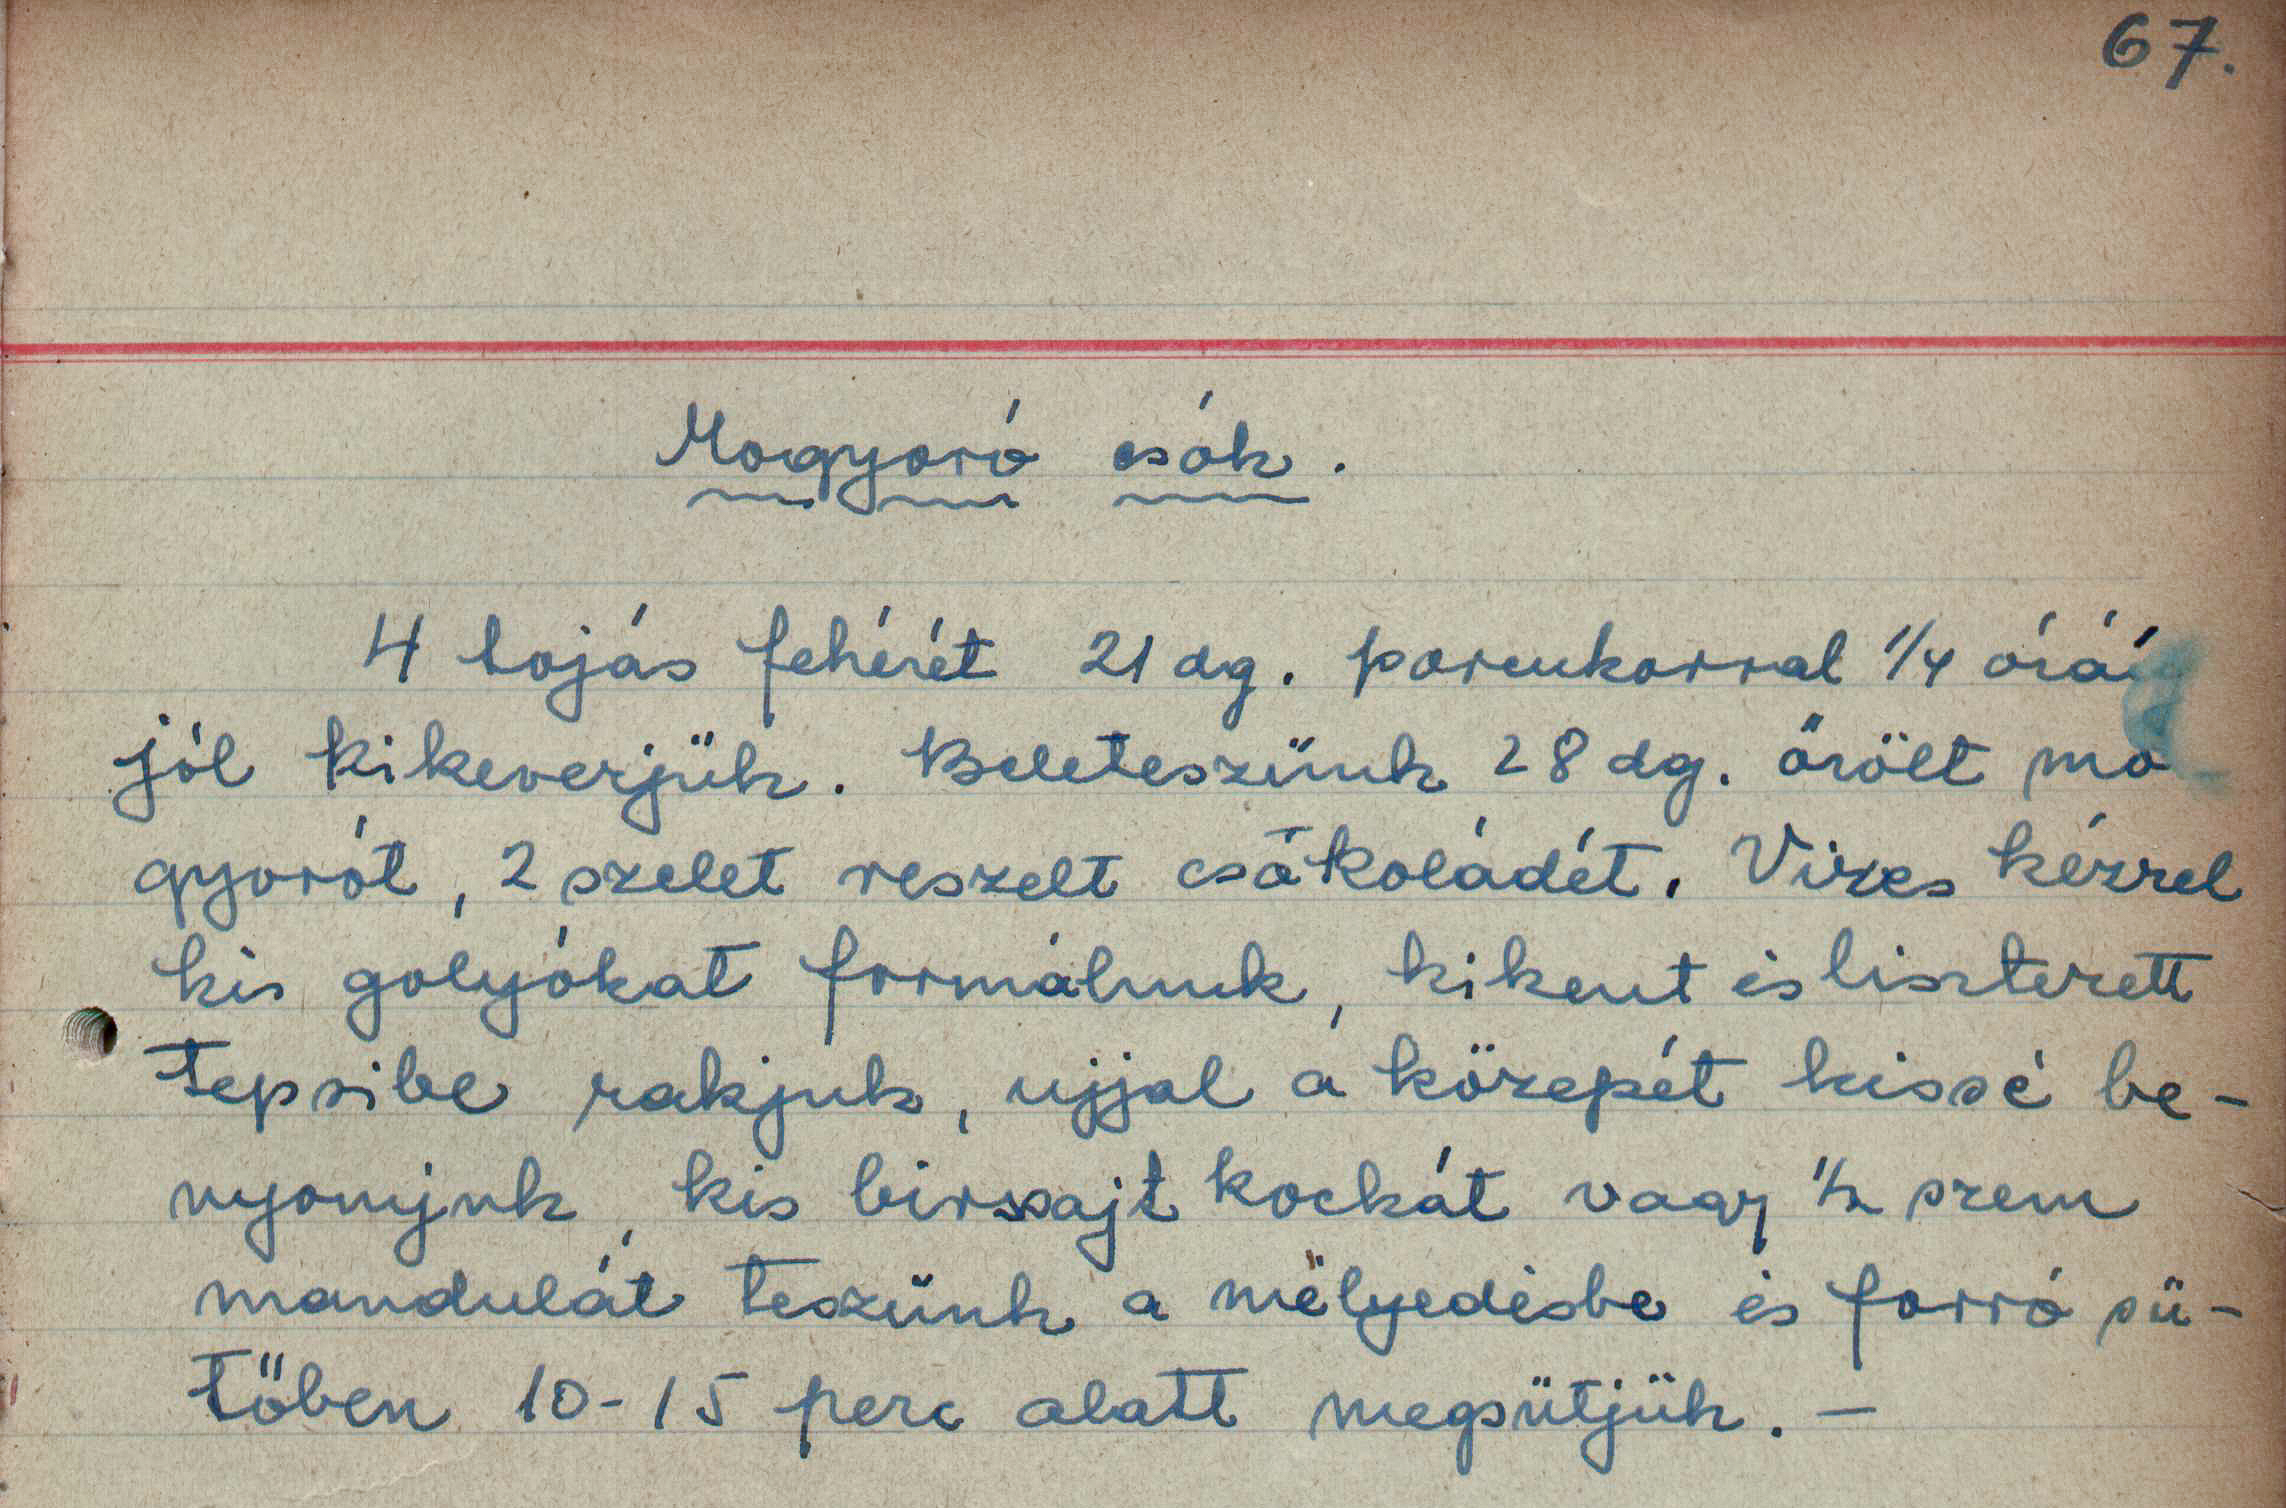 67.
Mogyoró csók.
4 tojás fehérét 21 dg. porcukorral 1/4 óráig
jól kikeverjük. Beleteszünk 28 dg. őrölt mo
gyorót, 2 szelet reszelt csokoládét. Vizes kézzel
kis golyókat formálunk, kikent és lisztezett
tepsibe rakjuk, ujjal a közepét kissé be-
nyomjuk, kis birssajt kockát vagy 1/2 szem
mandulát teszünk a mélyedésbe és forró sü-
tőben 10-15 perc alatt megsütjük. –